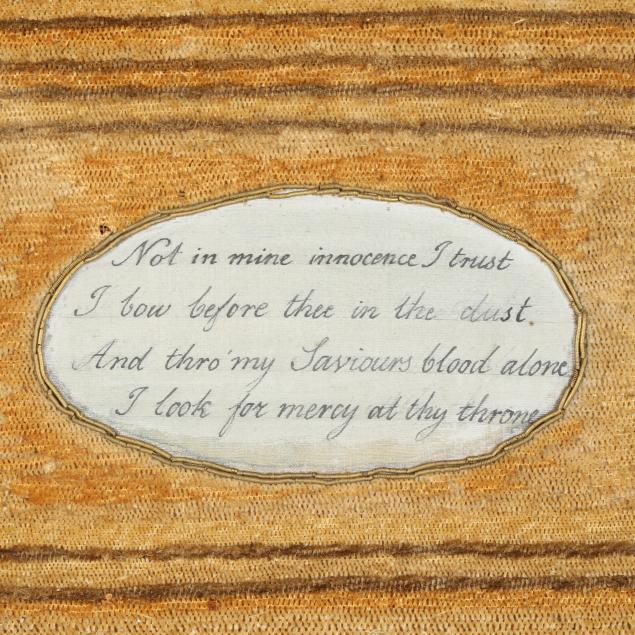 Not in mine innocence I trust
I bow before thee in the dust
And thro' my Saviours blood alone
I look for mercy at thy throne